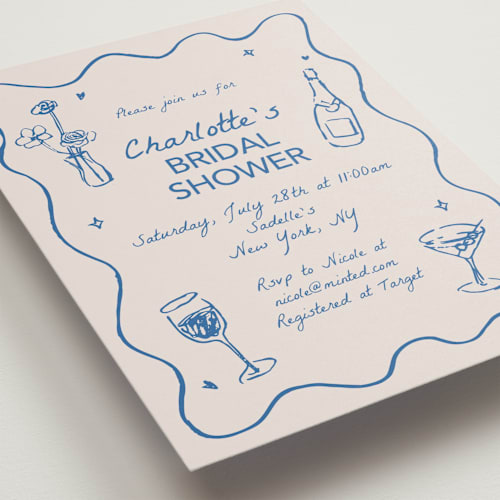 Please join us for
Charlotte's
BRIDAL
SHOWER
Saturday, July 28th at 11:00am
Sadelle's
New York, NY
Rsvp to Nicole at
nicole@minted.com
Registered at Target